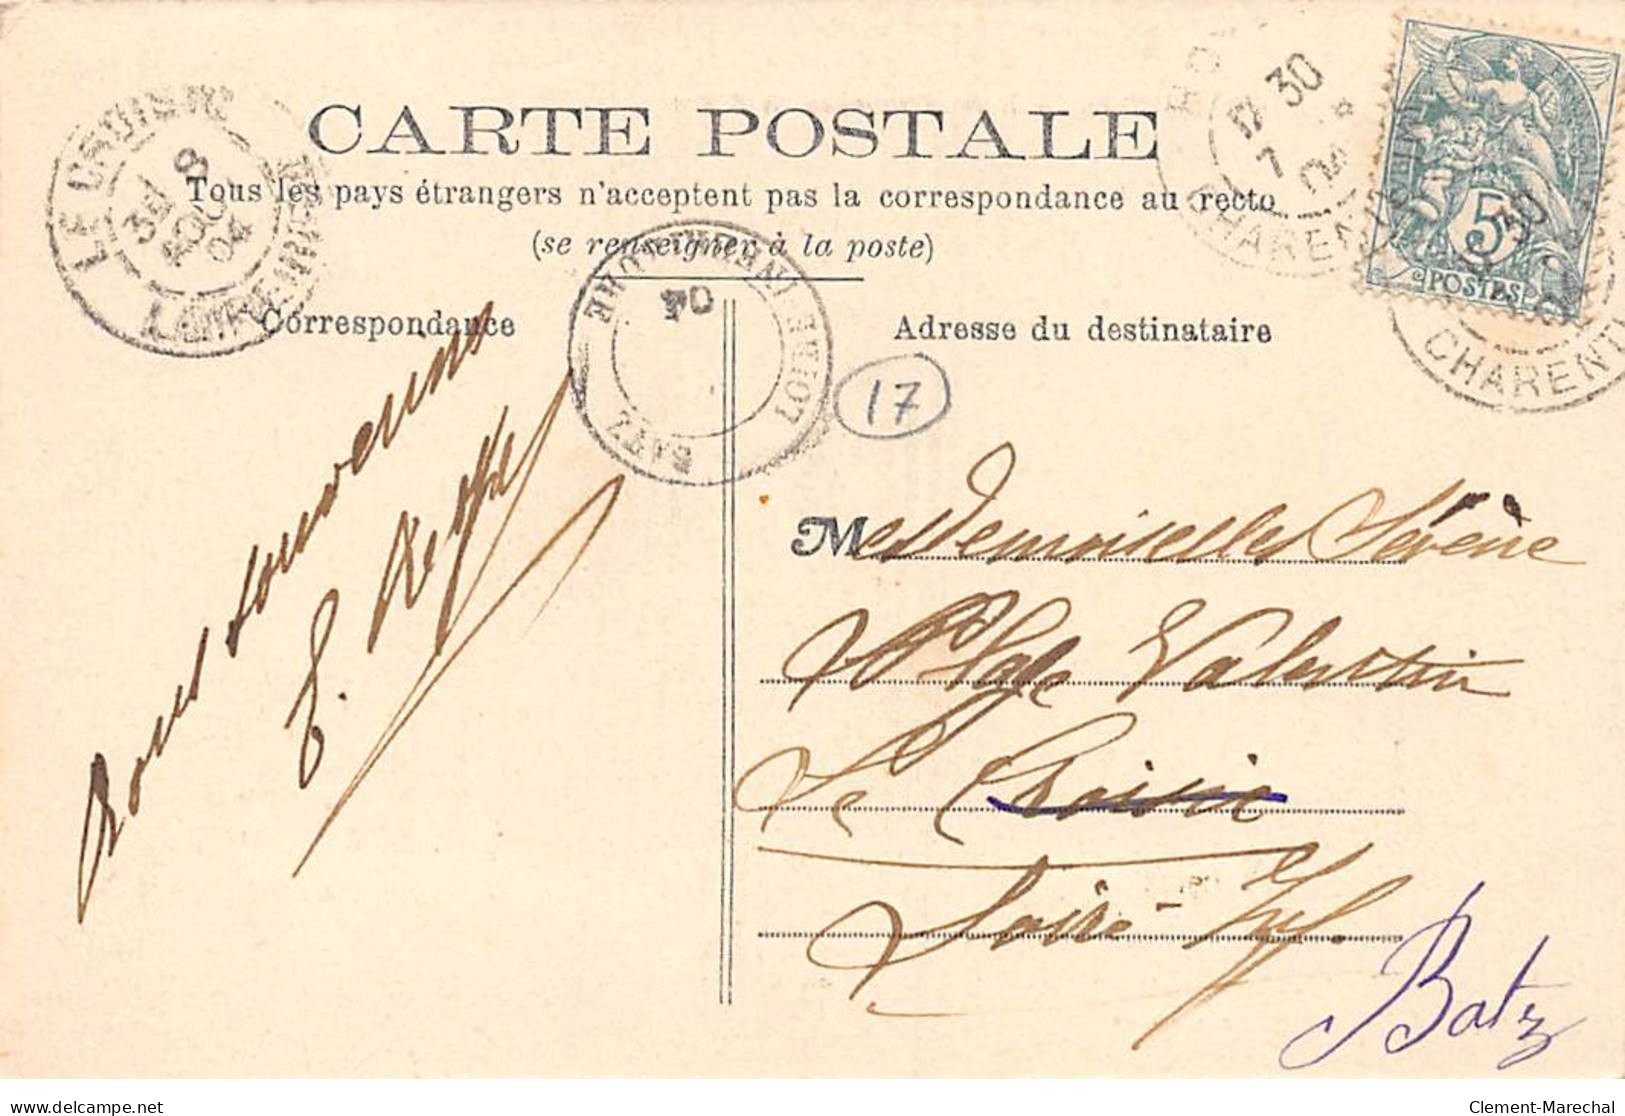 CARTE POSTALE
Tous les pays étrangers n'acceptent pas la correspondance au recto
(se renseigner à la poste)
Correspondance
Adresse du destinataire
LE CROISIC
3E 8
AOU
04
LOIRE-INFRE
BATZ
LOIRE-INFERIEURE
04
17 30
7
04
CHARENTE
CHARENT
5
POSTES
17
Bons souvenirs
Mesdemoiselles
Plage Valentin
Le Croisic
Loire-Inf.
Batz
delcampe.net
Clement-Marechal